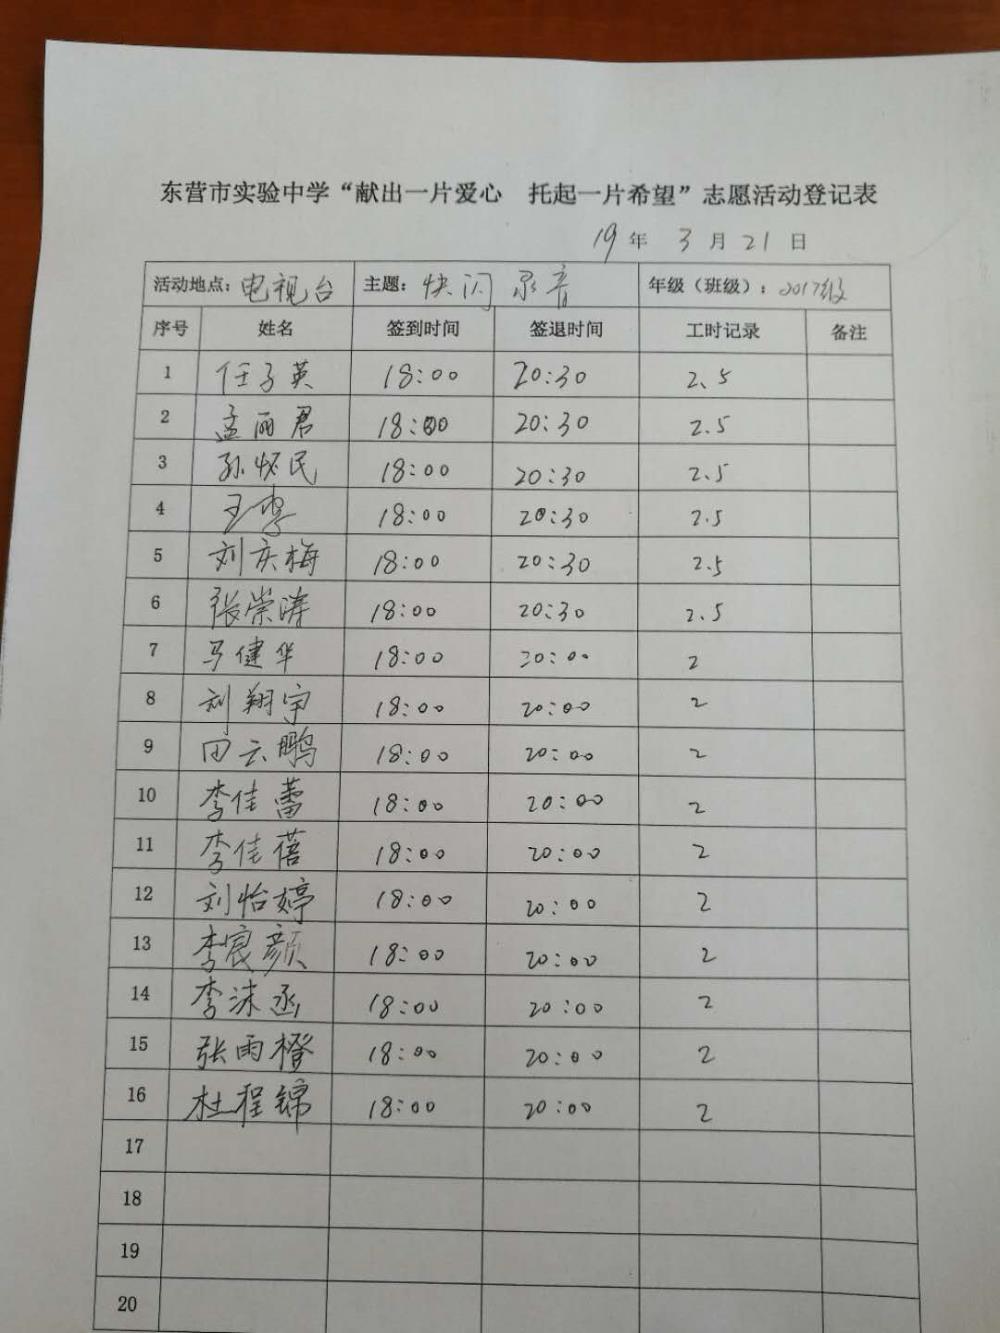 东营市实验中学“献出一片爱心 托起一片希望”志愿活动登记表
19年 3月21日
活动地点：电视台 主题：快闪 录音 年级（班级）：2017级
序号 姓名 签到时间 签退时间 工时记录 备注
1 任子英 18:00 20:30 2.5
2 孟丽君 18:00 20:30 2.5
3 孙怀民 18:00 20:30 2.5
4 王 18:00 20:30 2.5
5 刘庆梅 18:00 20:30 2.5
6 张崇涛 18:00 20:30 2.5
7 马健华 18:00 20:00 2
8 刘翔宇 18:00 20:00 2
9 田云鹏 18:00 20:00 2
10 李佳蕾 18:00 20:00 2
11 李佳蓓 18:00 20:00 2
12 刘怡婷 18:00 20:00 2
13 李宸颜 18:00 20:00 2
14 李沫丞 18:00 20:00 2
15 张雨橙 18:00 20:00 2
16 杜程锦 18:00 20:00 2
17
18
19
20